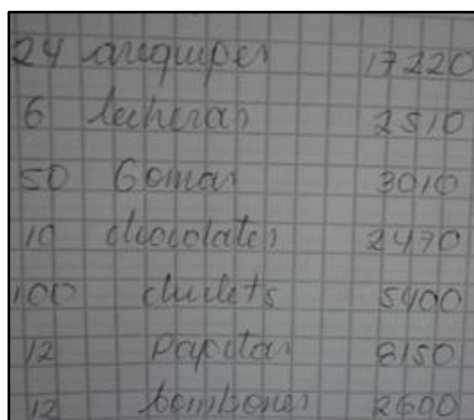 24 arequipes 17220
6 lecheras 2510
50 Gomas 3010
10 chocolates 2470
100 chiclets 5400
12 Papitas 8150
12 bombones 2600